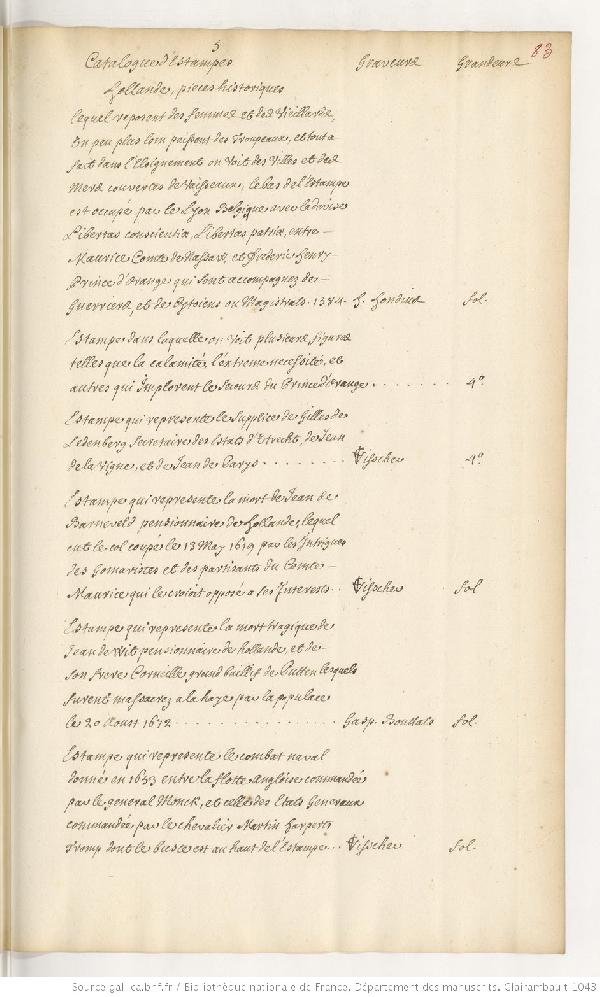 5
83
Catalogue d'Estampes Graveurs Grandeurs
hollande, pieces historiques
lequel reposent des femmes et des Vieillards,
Un peu plus loin paissent des Troupeaux, et tout a
fait dans l'Eloignement on Voit des Villes et des
Mers couvertes de Vaisseaux, le bas de l'Estampe
est occupé par le Lyon Belgique avec la devise
Libertas conscientia, Libertas patria, entre
Maurice Comte de Nassau, et frederic henry
Prince d'Orange qui sont accompagnez de
Guerriers, et de Citoiens ou Magistrats. 1574. h. hondius fol.
Estampe dans laquelle on Voit plusieurs figures
telles que la calamité, l'extreme necessité, et
autres qui Implorent le Secours du Prince d'orange . . . . . . . 4°.
Estampe qui represente le Supplice de Gilles de
Ledenberg Secretaire des Estats d'Utrecht, de Jean
de la Vigne, et de Jean de Parys . . . . . . . . Visscher 4°.
Estampe qui represente la mort de Jean de
Barneveld pensionnaire de hollande, lequel
eut le col coupé le 13 May 1619 par les Intrigues
des Gomaristes et des partisants du Comte
Maurice qui le croioit opposé a ses Interests . . Visscher fol
Estampe qui represente la mort tragique de
Jean de Wit pensionnaire de hollande, et de
son frere Corneille grand baillif de Putten lesquels
furent massacrez a la haye par la populace
le 20 Aoust 1672 . . . . . . . . . . . . . . . Gasp. Bouttats fol.
Estampe qui represente le combat naval
donné en 1653 entre la flotte Angloise commandée
par le general Monck, et celle des Etats Generaux
commandée par le chevalier Martin harperts
Tromp dont le buste est au haut de l'Estampe . . Visscher fol.
Source gallica.bnf.fr / Bibliothèque nationale de France. Département des manuscrits. Clairambault 1043